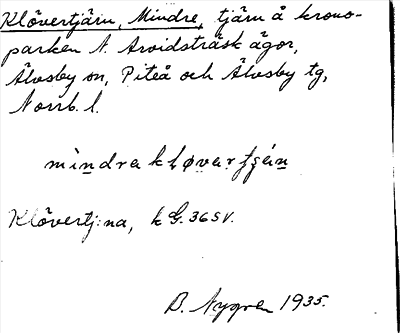 Klövertjärn, Mindre, tjärn å krono-
parken N. Arvidsträsk ägor,
Älvsby sn, Piteå och Älvsby tg,
Norrb. l.
Klövertj:na, k G. 36 SV.
B. Nygren 1935.